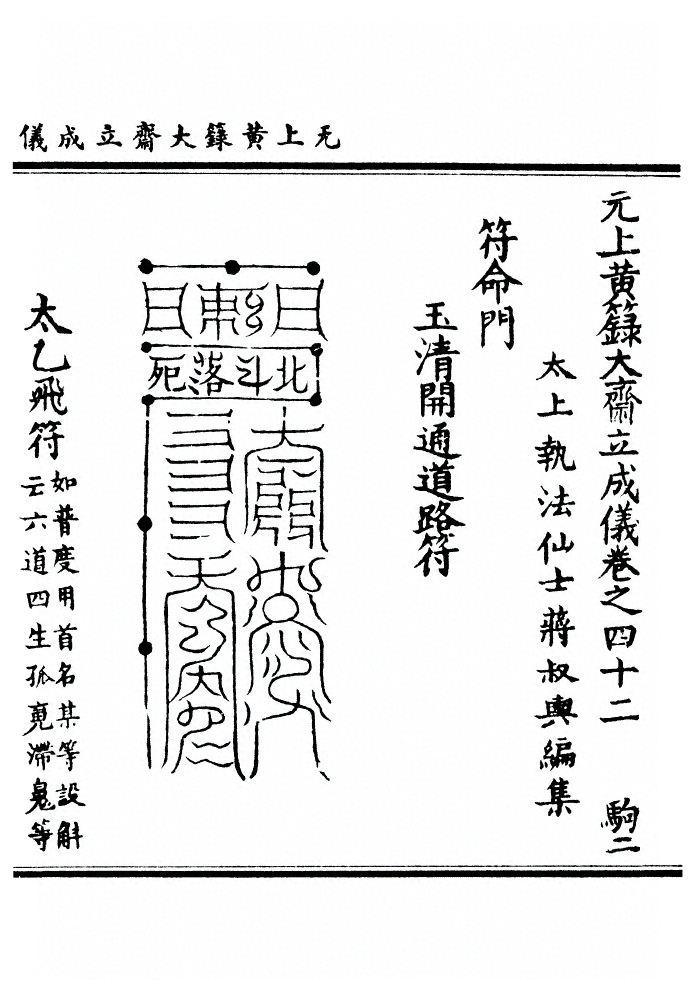 无上黄籙大齋立成儀
元上黄籙大齋立成儀卷之四十二 駒二
太上執法仙士蔣叔輿編集
符命門
玉清開通道路符
北斗落死
太乙飛符
如普度用首名某等設斛
云六道四生孤䰟滯鬼等